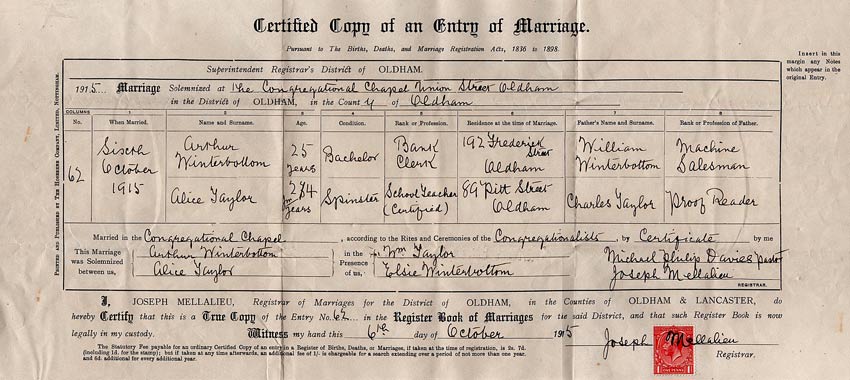 Certified Copy of an Entry of Marriage.
Pursuant to The Births, Deaths, and Marriage Registration Acts, 1836 to 1898.
Insert in this
margin any Notes
which appear in the
original Entry.
Superintendent Registrar's District of OLDHAM.
1915. Marriage Solemnized at The Congregational Chapel Union Street Oldham
in the District of OLDHAM, in the County of Oldham
COLUMNS 1 2 3 4 5 6 7 8
No. When Married. Name and Surname. Age. Condition. Rank or Profession. Residence at the time of Marriage. Father's Name and Surname. Rank or Profession of Father.
62 Sixth October 1915
Arthur Winterbottom 25 years Bachelor Bank Clerk 192 Frederick Street Oldham William Winterbottom Machine Salesman
Alice Taylor 24 years Spinster School Teacher (Certified) 89 Pitt Street Oldham Charles Taylor Proof Reader
Married in the Congregational Chapel, according to the Rites and Ceremonies of the Congregationalists, by Certificate by me
This Marriage was Solemnized between us, Arthur Winterbottom Alice Taylor in the Presence of us, Wm Taylor Elsie Winterbottom Michael Philip Davies pastor Joseph Mellalieu
REGISTRAR.
I, JOSEPH MELLALIEU, Registrar of Marriages for the District of OLDHAM, in the Counties of OLDHAM & LANCASTER, do
hereby Certify that this is a True Copy of the Entry No. 62 in the Register Book of Marriages for the said District, and that such Register Book is now
legally in my custody. Witness my hand this 6th day of October 1915
Joseph Mellalieu
Registrar.
The Statutory Fee payable for an ordinary Certified Copy of an entry in a Register of Births, Deaths, or Marriages, if taken at the time of registration, is 2s. 7d.
(including 1d. for the stamp); but if taken at any time afterwards, an additional fee of 1/- is chargeable for a search extending over a period of not more than one year,
and 6d. additional for every additional year.
PRINTED AND PUBLISHED BY THE HOSIERS COMPANY, LIMITED, NOTTINGHAM.
ONE PENNY